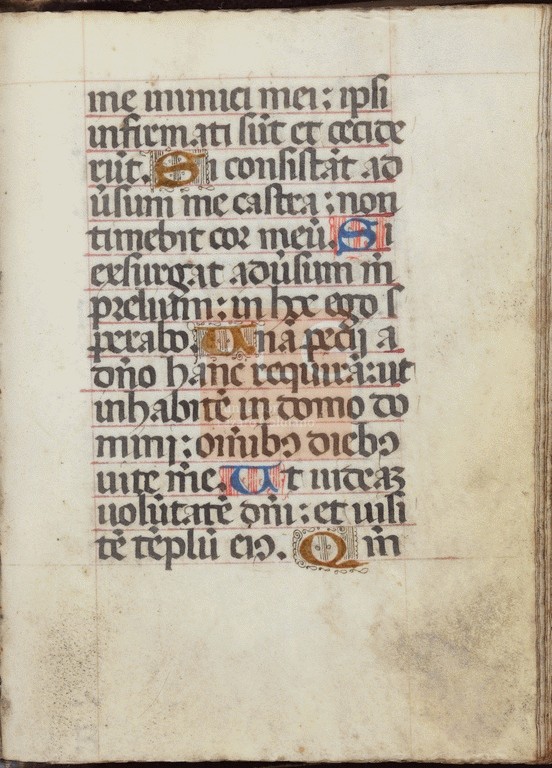 me inimici mei : ipsi
infirmati sūt et cecide
rūt. Si consistāt ad
ūsum me castra : non
timebit cor meū. Si
exsurgat adūsum m̄
prelium : in hoc ego s
perabo. Unā pecij a
dn̄o hanc requirā : ut
inhabitē in domo do
minj : oīnibꝯ diebꝯ
uite me. Ut uideaꝫ
uolūtatē dn̄i : et uisi
tē tēplū eiꝯ. Qm̄